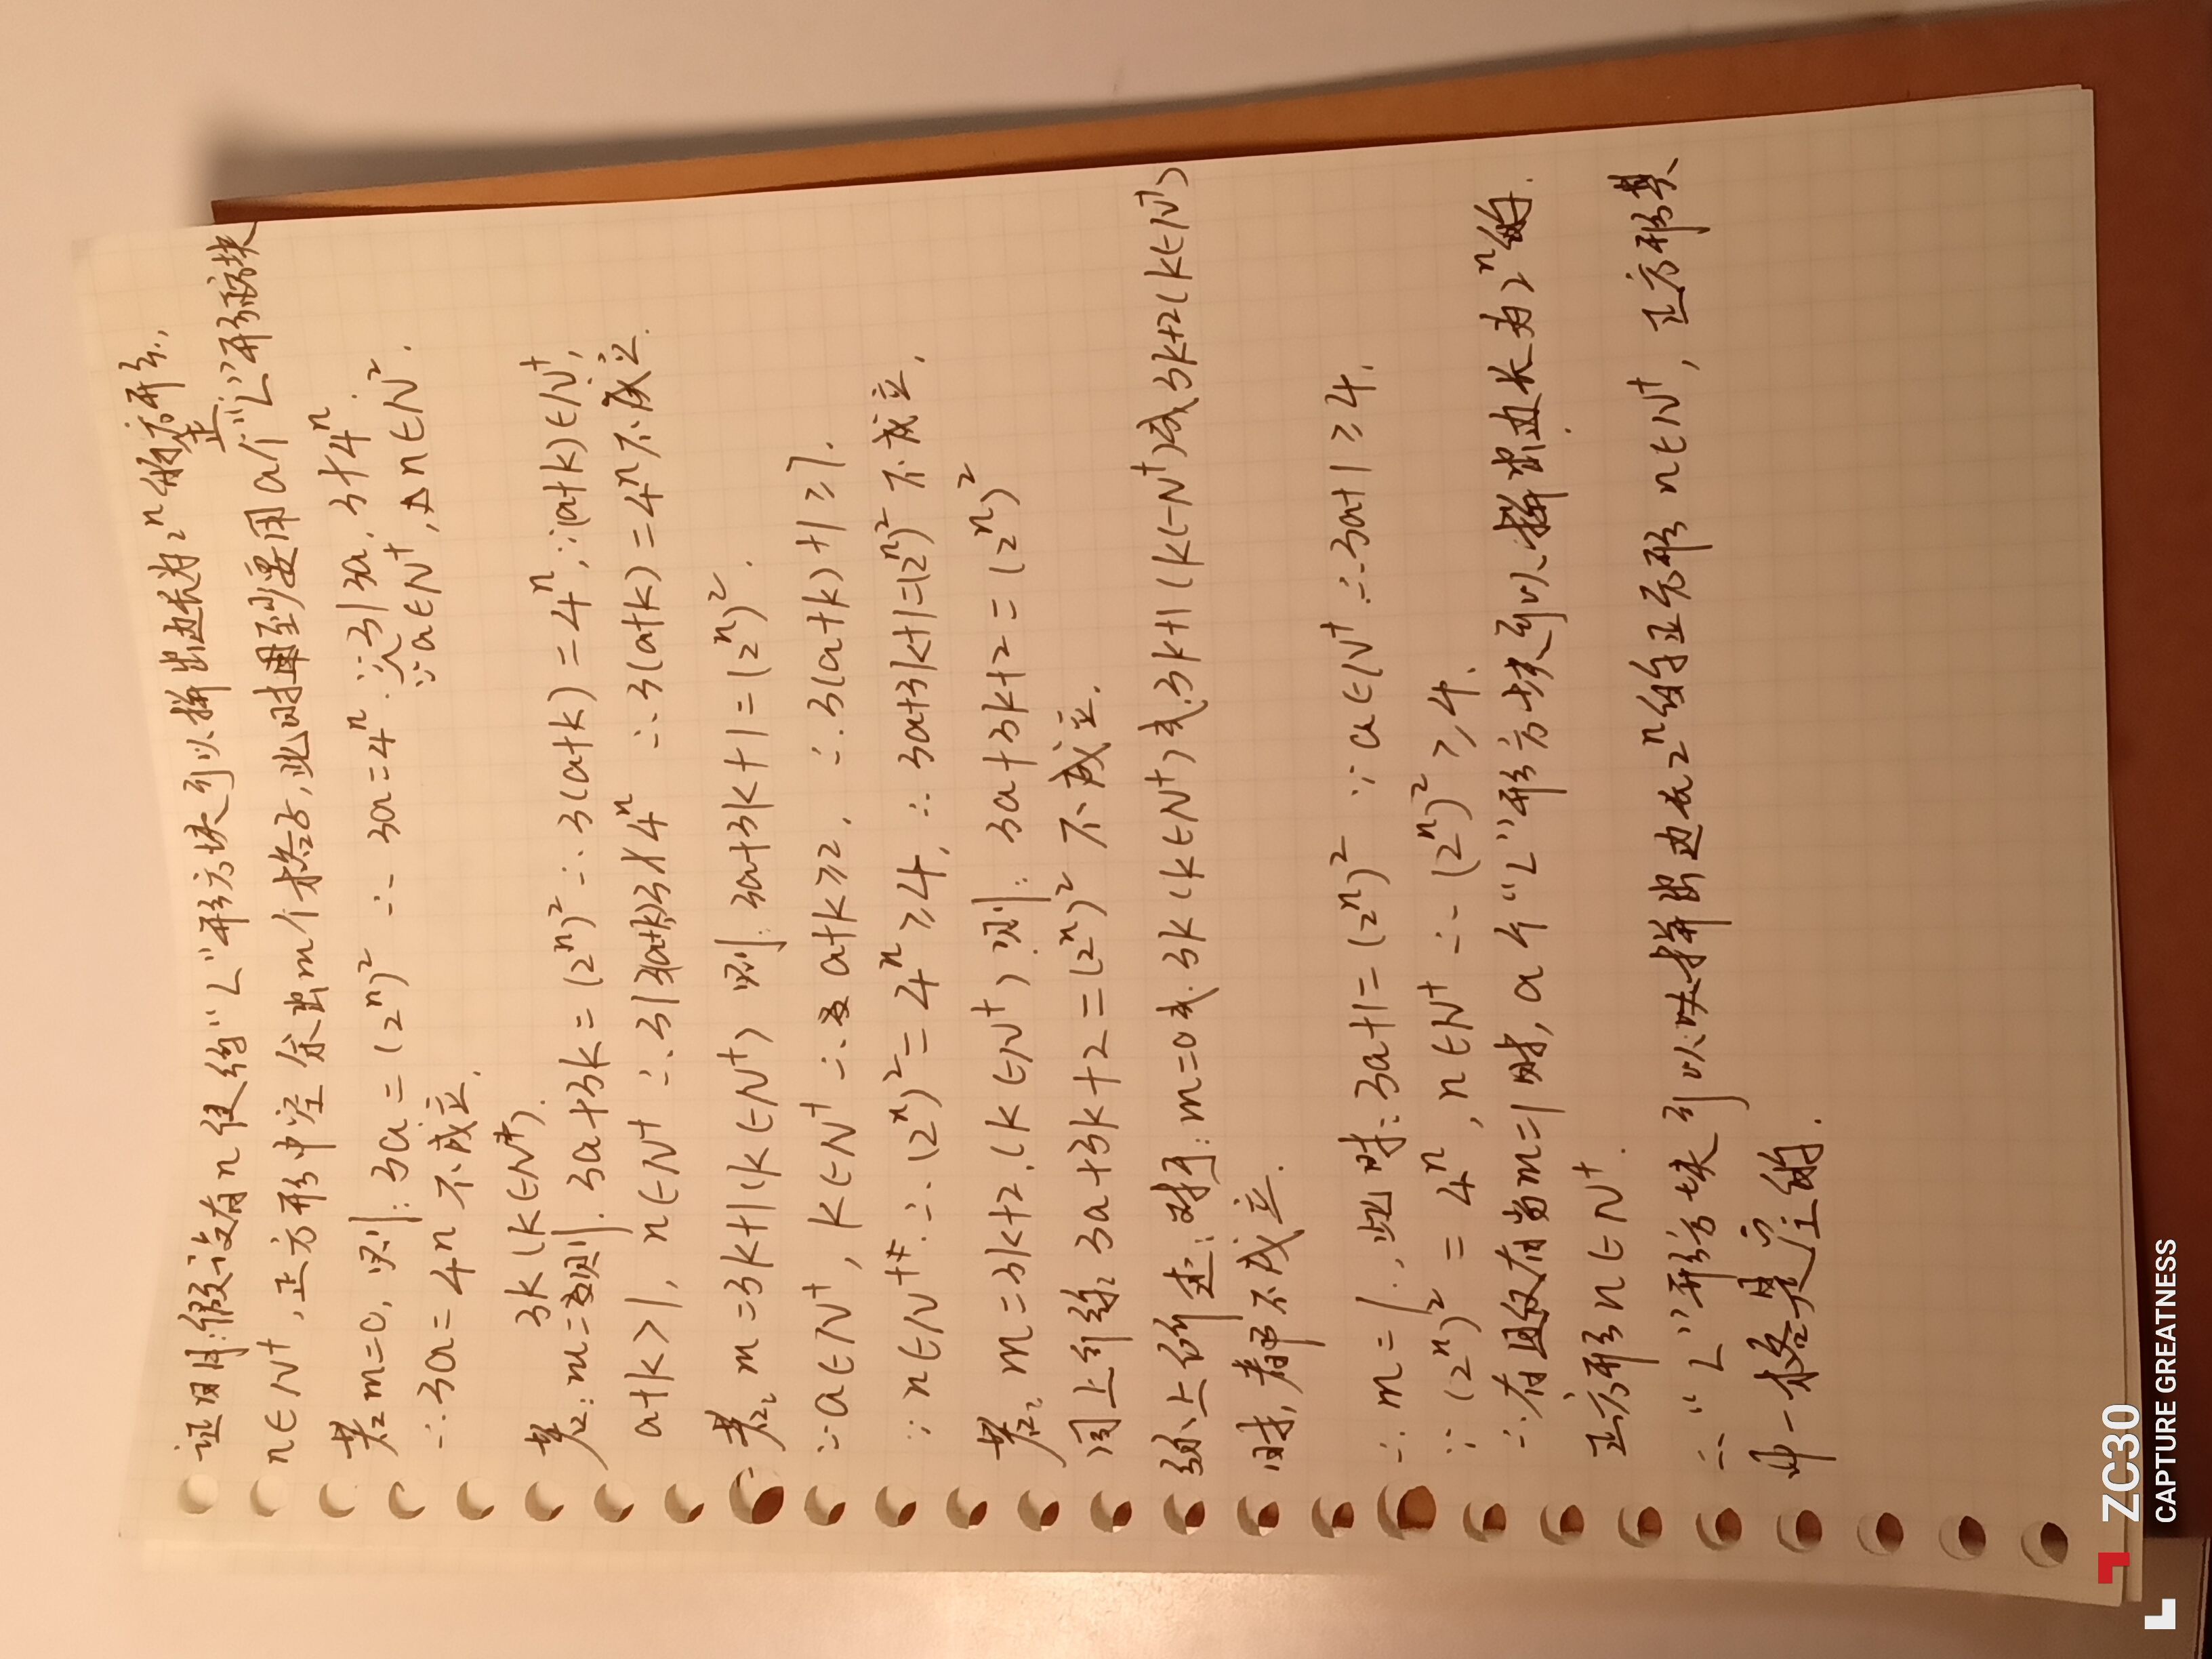 证明:假设有n使给"L"形方块可以拼出边长为2ⁿ的正方形.
n∈N⁺,正方形中空余出m个格子,此时用至少要用a个"L"形方块
若m=0,则:3a=(2ⁿ)² ∴3a=4ⁿ ∵3|3a,3∤4ⁿ.
又∵a∈N⁺,n∈N².
∴3a=4ⁿ不成立.
3k(k∈N⁺).
若:m=则:3a+3k=(2ⁿ)² ∴3(a+k)=4ⁿ,∵(a+k)∈N⁺,
a+k>1,n∈N⁺ ∴3|3(a+k),3∤4ⁿ ∴3(a+k)=4ⁿ不成立.
若m=3k+1(k∈N⁺)则:3a+3k+1=(2ⁿ)².
∵a∈N⁺,k∈N⁺∴a+k≥2,∴3(a+k)+1≥7.
∵n∈N⁺∴(2ⁿ)²=4ⁿ≥4,∴3a+3k+1=(2ⁿ)²不成立.
若m=3k+2,(k∈N⁺)则:3a+3k+2=(2ⁿ)²
同上可给:3a+3k+2=(2ⁿ)²不成立.
综上所述:对于:m=0或3k(k∈N⁺)或3k+1(k∈N⁺)或3k+2(k∈N⁺)
时,都不成立.
∴m=1,此时:3a+1=(2ⁿ)² ∵a∈N⁺∴3a+1≥4.
∵(2ⁿ)²=4ⁿ,n∈N⁺∴(2ⁿ)²≥4.
∴有且仅有当m=1时,a个"L"形方块可以拼出边长为2ⁿ的.
正方形n∈N⁺.
∴"L"形方块可以拼出边长2ⁿ的正方形n∈N⁺,正方形其
中一格是空的.
ZC30
CAPTURE GREATNESS